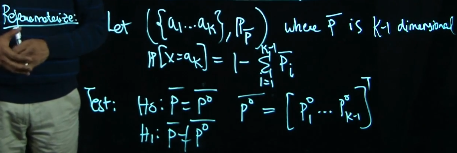 Reparameterize: Let ({a₁...aₖ}, P_P̄) where P̄ is k-1 dimensional
P[x=aₖ] = 1 - Σ_{i=1}^{k-1} P̄ᵢ
Test: H₀: P̄ = P̄⁰ P̄⁰ = [P₁⁰ ... P⁰ₖ₋₁]ᵀ
H₁: P̄ ≠ P̄⁰